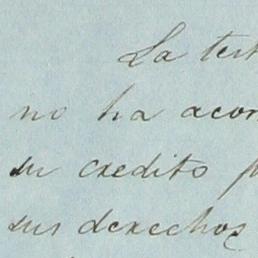 La test
no ha acom
su credito p
sus derechos